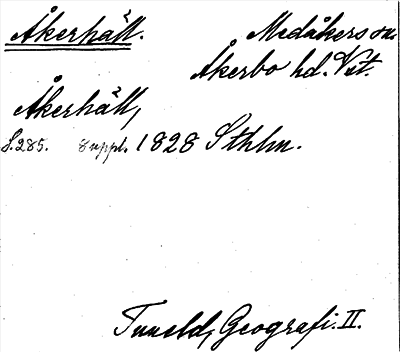 Åkerhäll. Medåkers sn.
Åkerbo hd. Vst.
Åkerhäll,
S. 285. suppl. 1828 Sthlm.
Tuneld, Geografi. II.